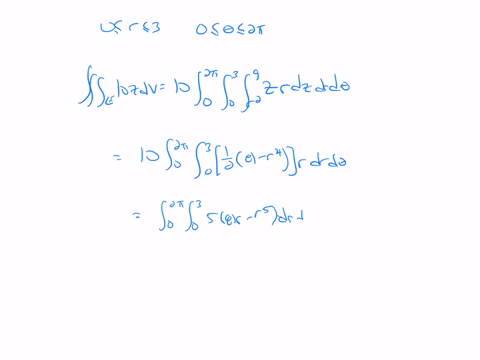 0 ≤ r ≤ 3   0 ≤ θ ≤ 2π
∭_E 10z dV = 10 ∫_0^{2π} ∫_0^3 ∫_{r^2}^9 z r dz dr dθ
= 10 ∫_0^{2π} ∫_0^3 [1/2 (81 - r^4)] r dr dθ
= ∫_0^{2π} ∫_0^3 5(81r - r^5) dr d